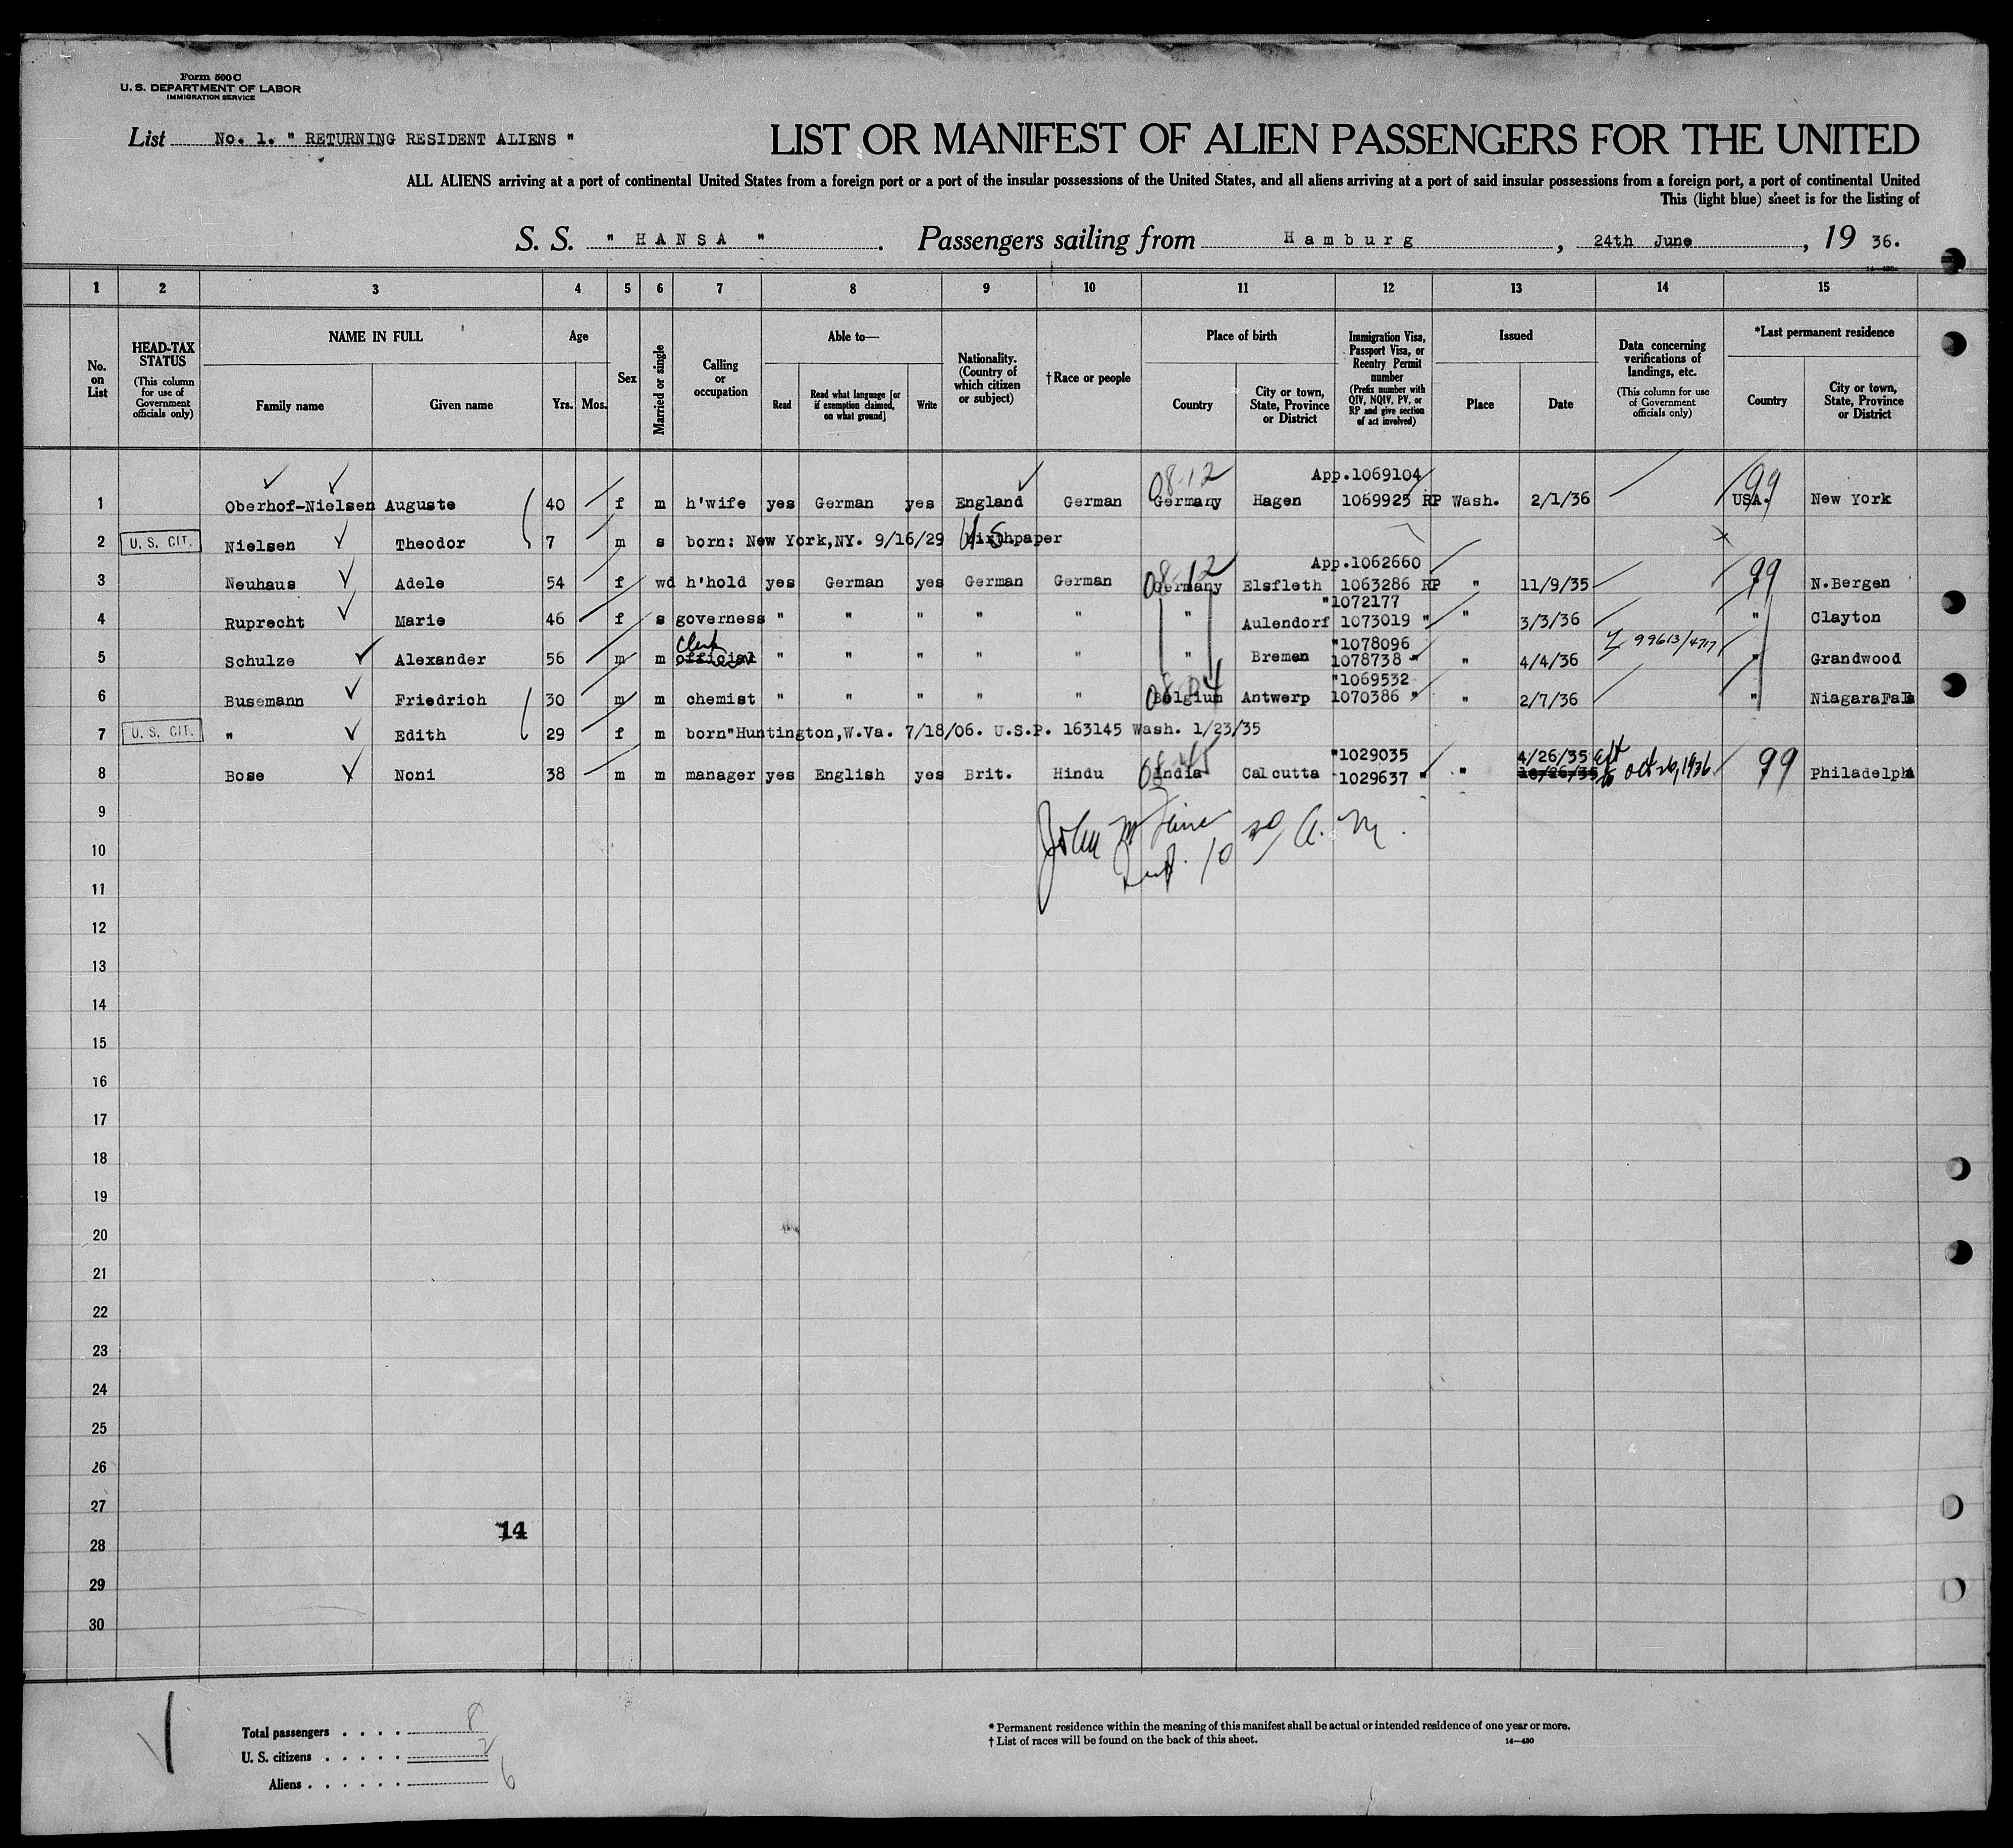 Form 500 C
U. S. DEPARTMENT OF LABOR
IMMIGRATION SERVICE
List No. 1. " RETURNING RESIDENT ALIENS "
LIST OR MANIFEST OF ALIEN PASSENGERS FOR THE UNITED
ALL ALIENS arriving at a port of continental United States from a foreign port or a port of the insular possessions of the United States, and all aliens arriving at a port of said insular possessions from a foreign port, a port of continental United
This (light blue) sheet is for the listing of
S. S. " HANSA " . Passengers sailing from Hamburg , 24th June , 19 36.
14—430
1 2 3 4 5 6 7 8 9 10 11 12 13 14 15
No. on List
HEAD-TAX STATUS
(This column for use of Government officials only)
NAME IN FULL
Family name Given name
Age
Yrs. Mos.
Sex
Married or single
Calling or occupation
Able to—
Read Read what language [or if exemption claimed, on what ground] Write
Nationality. (Country of which citizen or subject)
† Race or people
Place of birth
Country City or town, State, Province or District
Immigration Visa, Passport Visa, or Reentry Permit number
(Prefix number with QIV, NQIV, PV, or RP and give section of act involved)
Issued
Place Date
Data concerning verifications of landings, etc.
(This column for use of Government officials only)
*Last permanent residence
Country City or town, State, Province or District
08-12 App.1069104 99
1 Oberhof-Nielsen Auguste 40 f m h'wife yes German yes England German Germany Hagen 1069925 RP Wash. 2/1/36 USA. New York
2 U. S. CIT. Nielsen Theodor 7 m s born: New York,NY. 9/16/29 birthpaper U.S.
08-12 App.1062660 99
3 Neuhaus Adele 54 f wd h'hold yes German yes German German Germany Elsfleth 1063286 RP " 11/9/35 N.Bergen
"1072177
4 Ruprecht Marie 46 f s governess " " " " " " Aulendorf 1073019 " " 3/3/36 " Clayton
Clerk "1078096 99613/4717
5 Schulze Alexander 56 m m official " " " " " " Bremen 1078738 " " 4/4/36 " Grandwood
08-04 "1069532
6 Busemann Friedrich 30 m m chemist " " " " " Belgium Antwerp 1070386 " " 2/7/36 " NiagaraFals
7 U. S. CIT. " Edith 29 f m born"Huntington,W.Va. 7/18/06. U.S.P. 163145 Wash. 1/23/35
"1029035 4/26/35
8 Bose Noni 38 m m manager yes English yes Brit. Hindu India Calcutta 1029637 " " 10/26/35 Oct 26, 1936 99 Philadelpha
9
John M
10
10 30 A. M.
11
12
13
14
15
16
17
18
19
20
21
22
23
24
25
26
27
14
28
29
30
Total passengers . . . . 8
U. S. citizens . . . . . 2
Aliens . . . . . . 6
* Permanent residence within the meaning of this manifest shall be actual or intended residence of one year or more.
† List of races will be found on the back of this sheet. 14—430